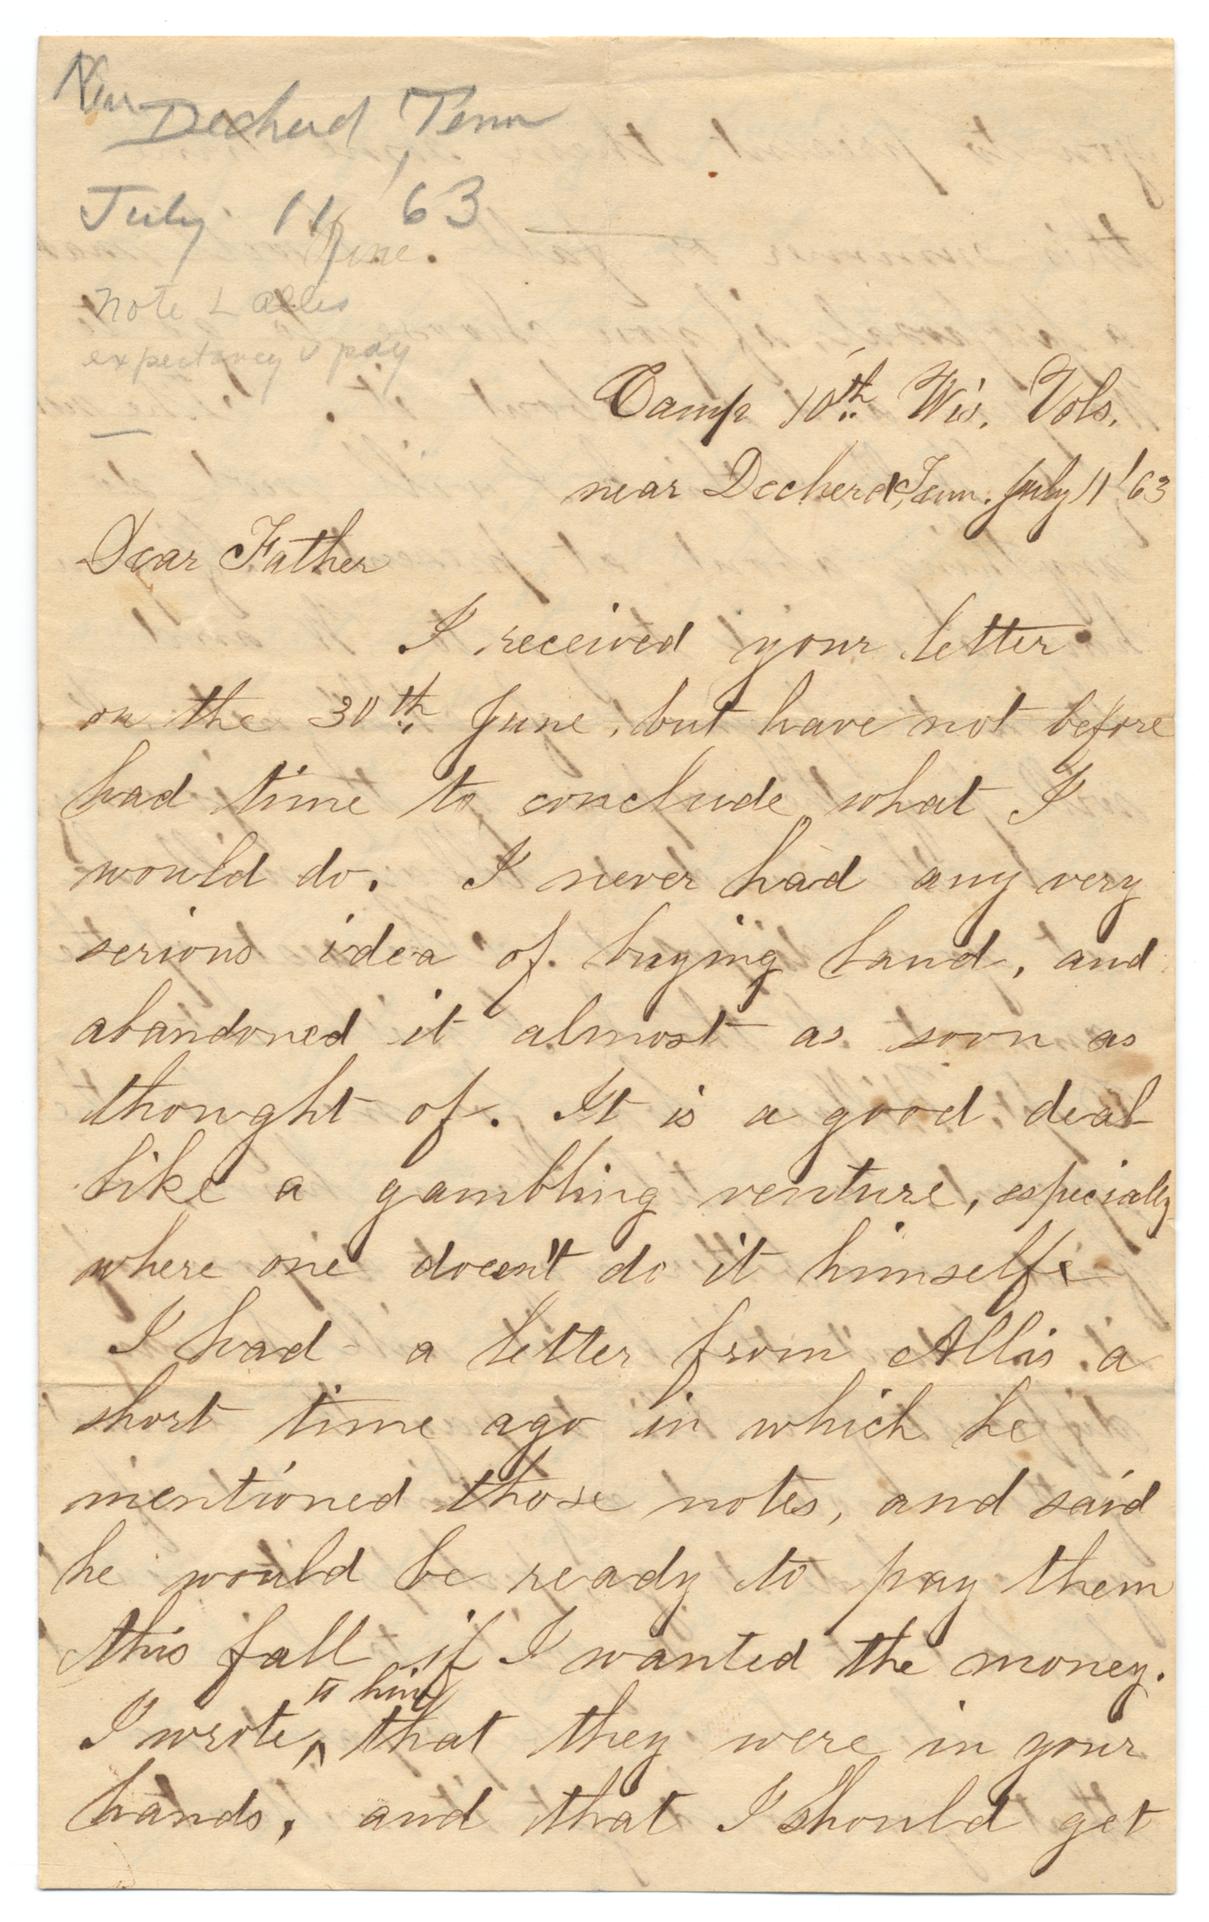 Near
Decherd Tenn
July 11, '63
fine.
note L Allis
expectancy o pay
Camp 10th Wis. Vols.
near Decherd, Tenn. July 11 '63
Dear Father
I received your letter
on the 30th June, but have not before
had time to conclude what I
would do. I never had any very
serious idea of buying land, and
abandoned it almost as soon as
thought of. It is a good deal
like a gambling venture, especially
where one doesn't do it himself.
I had a letter from Allis a
short time ago in which he
mentioned those notes, and said
he would be ready to pay them
this fall if I wanted the money.
I wrote, to him that they were in your
hands, and that I should get